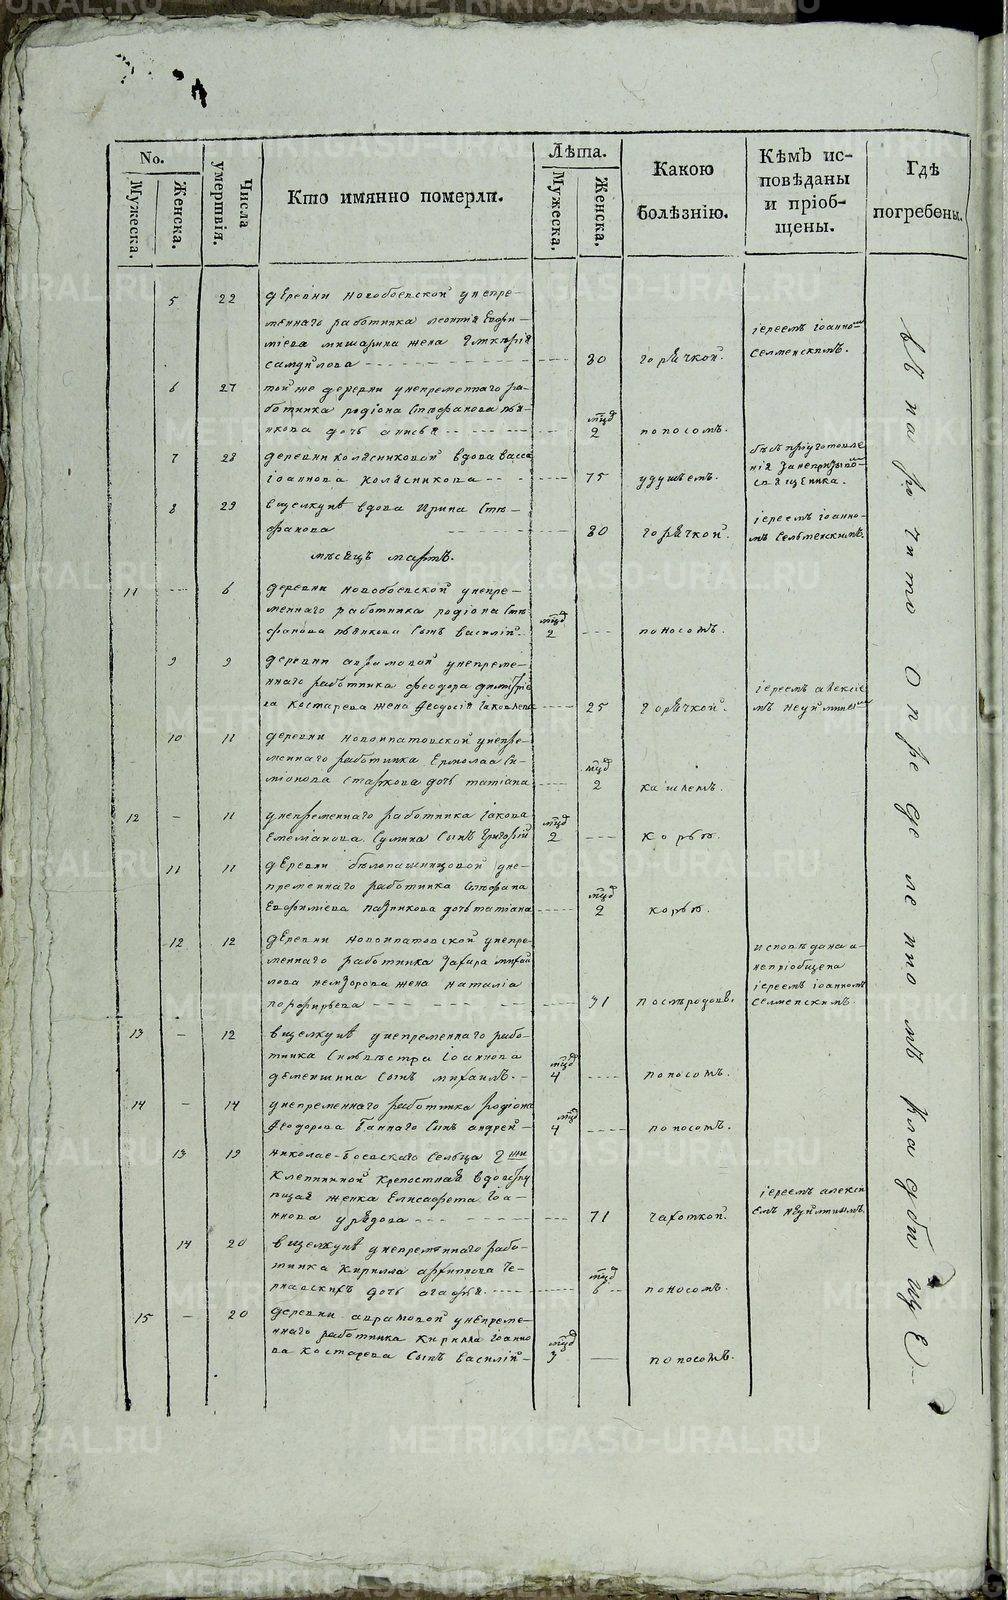 No.
Мужеска.
Женска.
Числа умертвія.
Кто имянно померли.
Лѣта.
Мужеска.
Женска.
Какою болѣзнію.
Кѣмъ исповѣданы и пріобщены.
Гдѣ погребены.
5 22 деревни новобоевской унепре-
меннаго работника леонтія Евфи-
міева мишарина жена
самуилова 80 горячкой. іереемъ іоанно-
селменскимъ.
6 27 той же деревни унепременнаго ра-
ботника родіона Стефанова пья-
нкова дочь анисья мцъ 2 поносомъ.
7 28 деревни колясниковой вдова васса
іоаннова колясникова 75 удушьемъ.
8 29 вщелкунѣ вдова ирина Сте-
фанова 80 горячкой. іереемъ іоанно-
мъ Селменскимъ.
мѣсяцъ мартъ.
11 6 деревни новобоевской унепре-
меннаго работника родіона Сте-
фанова пьянкова Сынъ василій. мцъ 2 поносомъ.
9 9 деревни аврамовой унепреме-
ннаго работника феодора димитріе
ва костарева жена феодосія іаковлева 25 горячкой. іереемъ алексіе
мъ
10 11 деревни новоипатовской унепре-
меннаго работника Ермолаа Си-
міонова Старкова дочь татіана мцъ 2 кашлемъ.
12 11 унепременнаго работника іакова
Емеліанова Сулина Сынъ григорій мцъ 2 корью.
11 11 деревни бѣлопашинцовой уне-
пременнаго работника Стефана
Евфиміева дочь татіана мцъ 2 корью.
12 12 деревни новоипатовской унепре-
меннаго работника михаи
лова жена наталіа
порфирьева 31 послѣродовъ. исповѣдана а
непріобщена
іереемъ іоанномъ
селменскимъ.
13 12 вщелкунѣ унепременнаго рабо-
тника Силвестра іоаннова
деменшина Сынъ михаилъ. мцъ 4 поносомъ.
14 14 унепременнаго работника родіона
феодорова баннаго Сынъ андрей мцъ 4 поносомъ.
13 19 николае-боевскаго Сельца
клепининой крепостная
женка Елисавета іоа-
ннова 71 чахоткой. іереемъ алексі
емъ
14 20 вщелкунѣ унепременнаго рабо-
тника кирилла архипова че-
рнавскихъ дочь агафья мцъ 6 поносомъ.
15 20 деревни аврамовой унепреме-
ннаго работника кирилла іоанно
ва костарева Сынъ василій мцъ 3 поносомъ.
въ на рочито Опре де ле нно мъ кла дби щѣ
METRIKI.GASO-URAL.RU